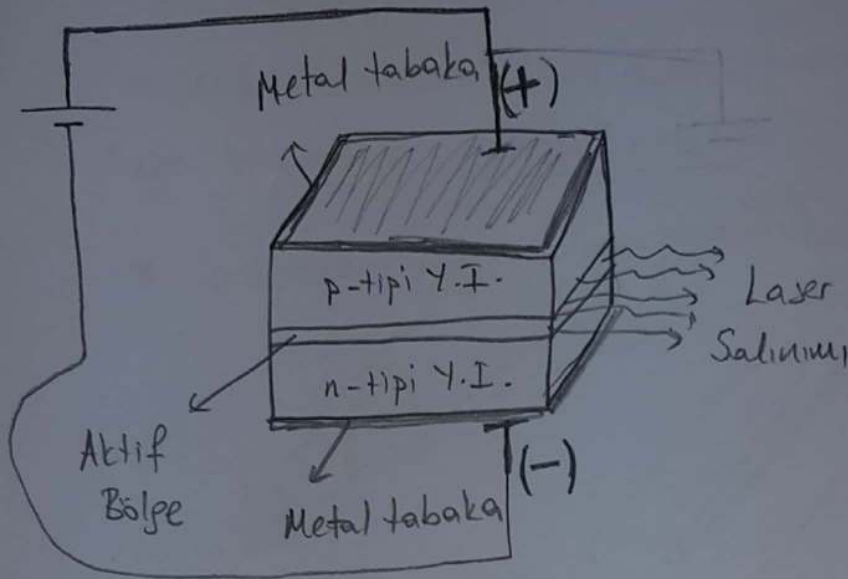 Metal tabaka
(+)
p-tipi Y.I.
n-tipi Y.I.
Laser
Salınımı
Aktif
Bölge
(-)
Metal tabaka